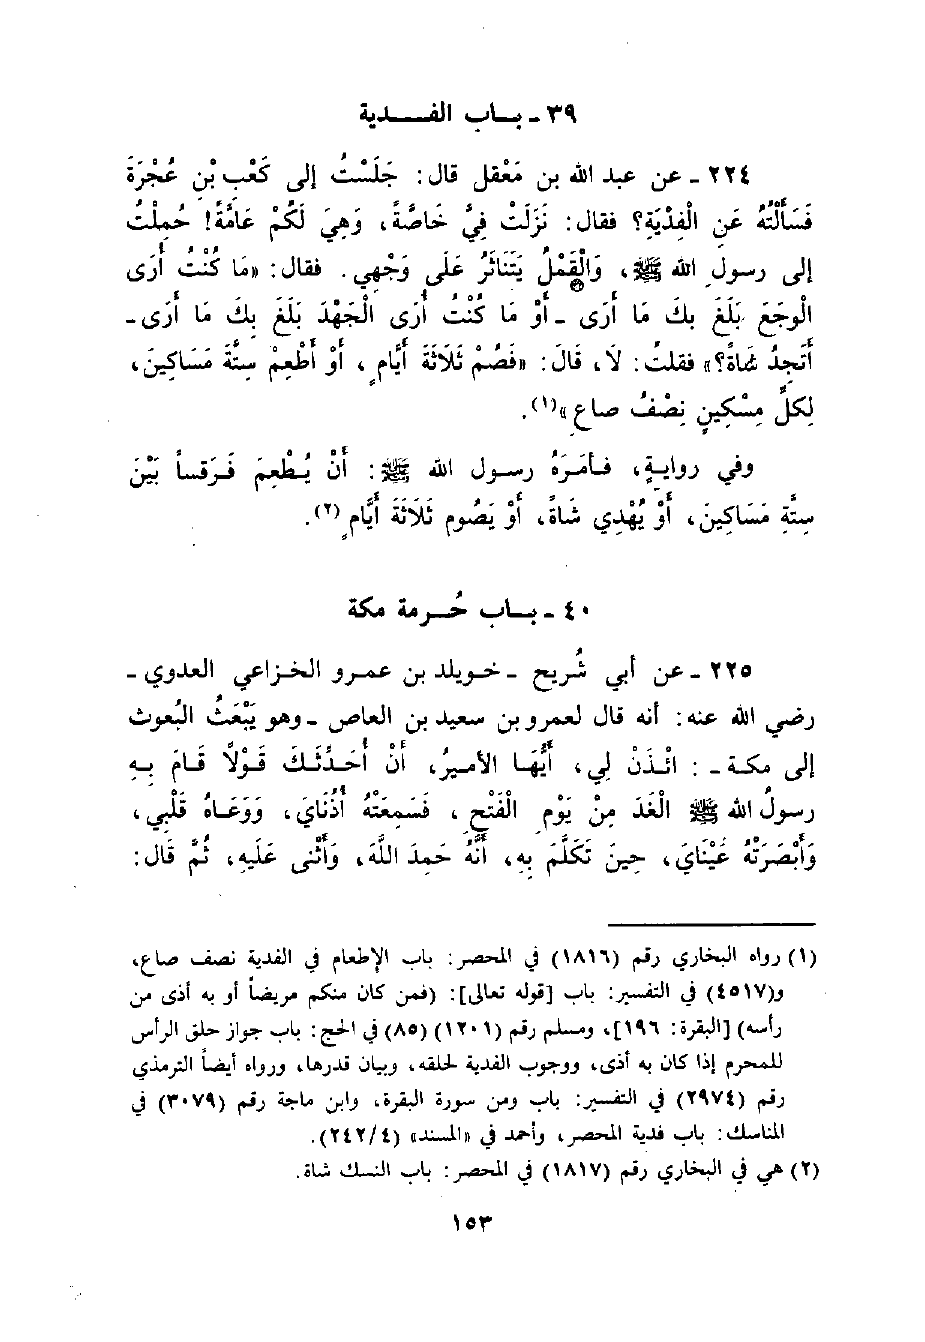 ٣٩ ـ بـاب الفـــدية
٢٢٤ ـ عن عبد الله بن مَعْقل قال: جَلَسْتُ إلى كَعْبِ بْنِ عُجْرَةَ
فَسَأَلْتُهُ عَنِ الْفِدْيَةِ؟ فقال: نَزَلَتْ فِيَّ خَاصَّةً، وَهِيَ لَكُمْ عَامَّةً! حُمِلْتُ
إلى رسولِ الله ﷺ، وَالْقَمْلُ يَتَنَاثَرُ عَلَى وَجْهِي. فقال: «مَا كُنْتُ أُرَى
الْوجَعَ بَلَغَ بِكَ مَا أَرَى ـ أَوْ مَا كُنْتُ أُرَى الْجَهْدَ بَلَغَ بِكَ مَا أَرَى ـ
أَتَجِدُ شَاةً؟» فقلتُ: لَا، قَالَ: «فَصُمْ ثَلَاثَةَ أَيَّامٍ، أَوْ أَطْعِمْ سِتَّةَ مَسَاكِينَ،
لِكلِّ مِسْكِينٍ نِصْفُ صاعٍ»(١).
وفي روايـةٍ، فـأمَرَهُ رسـول الله ﷺ: أَنْ يُـطْعِمَ فَـرَقـاً بَيْنَ
سِتَّةِ مَسَاكِينَ، أَوْ يُهْدِي شَاةً، أَوْ يَصُوم ثَلَاثَةَ أَيَّامٍ(٢).
٤٠ ـ بـاب حُـرمة مكة
٢٢٥ ـ عن أبي شُريح ـ خـويلد بن عمـرو الخـزاعي العدوي ـ
رضي الله عنه: أنه قال لعمرو بن سعيد بن العاص ـ وهو يَبْعَثُ البُعوث
إلى مكـة ـ : ائـذَنْ لي، أَيُّهـا الأميرُ، أَنْ أُحَـدِّثَـكَ قَـوْلًا قَـامَ بِـهِ
رسولُ الله ﷺ الْغَدَ مِنْ يَوْمِ الْفَتْحِ، فَسَمِعَتْهُ أُذُنَايَ، وَوَعَـاهُ قَلْبِي،
وَأَبْصَرَتْهُ عَيْنَايَ، حِينَ تَكَلَّمَ بِهِ، أَنَّهُ حَمِدَ اللَّهَ، وَأَثْنى عَلَيهِ، ثُمَّ قَالَ:
(١) رواه البخاري رقم (١٨١٦) في المحصر: باب الإطعام في الفدية نصف صاع،
و(٤٥١٧) في التفسير: باب [قوله تعالى]: (فمن كان منكم مريضاً أو به أذى من
رأسه) [البقرة: ١٩٦]، ومسلم رقم (١٢٠١) (٨٥) في الحج: باب جواز حلق الرأس
للمحرم إذا كان به أذى، ووجوب الفدية لحلقه، وبيان قدرها، ورواه أيضاً الترمذي
رقم (٢٩٧٤) في التفسير: باب ومن سورة البقرة، وابن ماجة رقم (٣٠٧٩) في
المناسك: باب فدية المحصر، وأحمد في «المسند» (٢٤٢/٤).
(٢) هي في البخاري رقم (١٨١٧) في المحصر: باب النسك شاة.
١٥٣